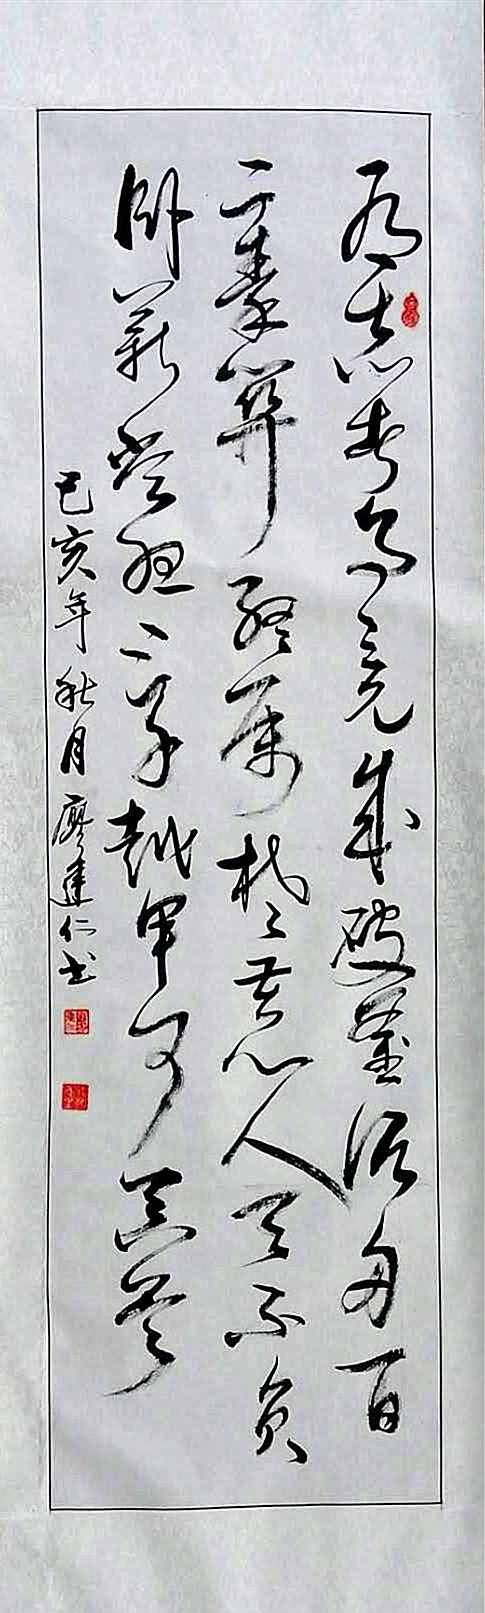 有志者事竟成破釜沉舟百
二秦关终属楚苦心人天不负
卧薪尝胆三千越甲可吞吴
己亥年秋月廖建仁书